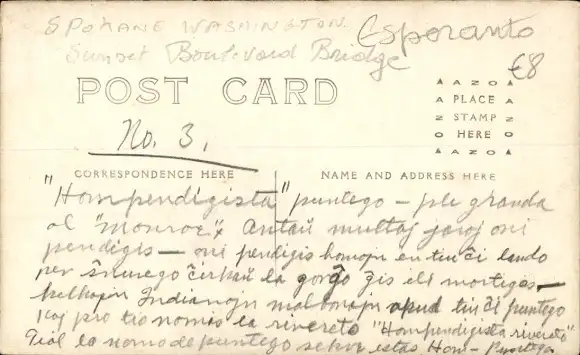 SPOKANE WASHINGTON.
Esperanto
Sunset Boulevard Bridge
€8
POST CARD
AZO
PLACE
STAMP
HERE
AZO
No. 3.
CORRESPONDENCE HERE
NAME AND ADDRESS HERE
"Hompendigista" puntego – pli granda
ol "Monroe". Antaŭ multaj jaroj oni
pendigis — oni pendigis homojn en tiu ĉi lando
per ŝnurego ĉirkaŭ la gorĝo ĝis ili mortigis –
kelkajn Indianojn malbonajn apud tiu ĉi puntego
kaj pro tio nomis la rivereto "Hompendigista rivereto"
Tial la nomo de puntego estas Hom-